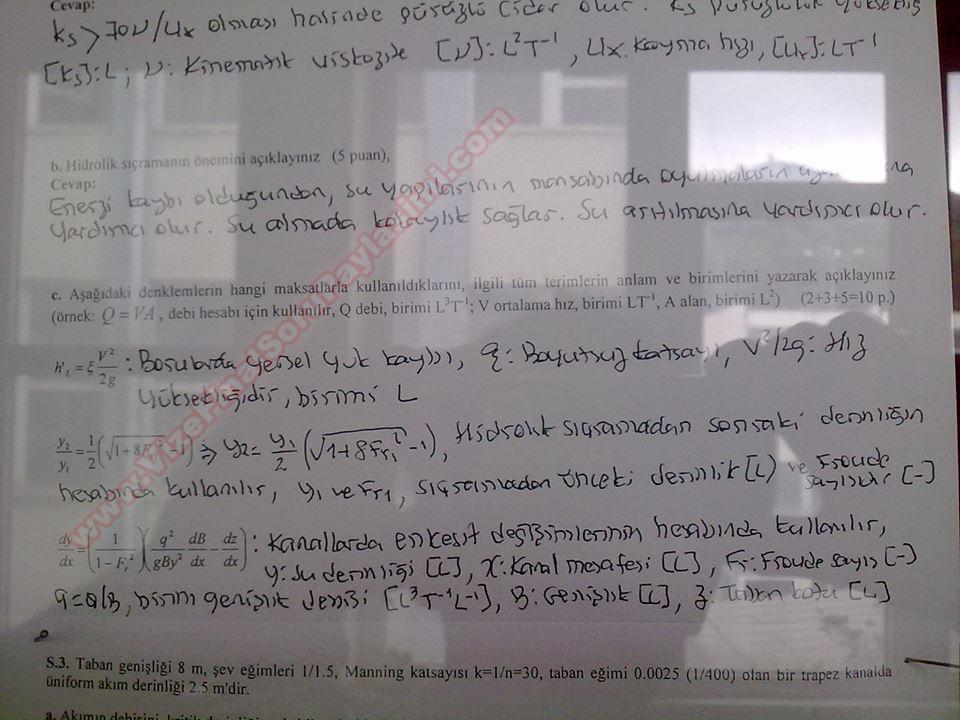 Cevap:
ks > 70ν/u* olması halinde pürüzlü cidar olur. ks pürüzlülük
[ks]: L ; ν: Kinematik viskozite [ν]: L²T⁻¹ , u*: kayma hızı, [u*]: LT⁻¹
b. Hidrolik sıçramanın önemini açıklayınız (5 puan),
Cevap:
Enerji kaybı olduğundan, su yapılarının mansabında oyulmaların
yardımcı olur. Su almada kolaylık sağlar. Su arıtılmasına yardımcı olur.
c. Aşağıdaki denklemlerin hangi maksatlarla kullanıldıklarını, ilgili tüm terimlerin anlam ve birimlerini yazarak açıklayınız
(örnek: Q = VA , debi hesabı için kullanılır, Q debi, birimi L³T⁻¹; V ortalama hız, birimi LT⁻¹, A alan, birimi L²) (2+3+5=10 p.)
h'L = ξ V²/2g : Borularda yersel yük kaybı, ξ: Boyutsuz katsayı, V²/2g: Hız
yüksekliğidir, birimi L
y₂/y₁ = 1/2 (√1+8Fr₁² -1) ⇒ y₂ = y₁/2 (√1+8Fr₁² -1), Hidrolik sıçramadan sonraki derinliğin
hesabında kullanılır, y₁ ve Fr₁, sıçramadan önceki derinlik [L] ve Froude sayısıdır [-]
dy/dx = (1/1-Fr²)(q²/gBy² dB/dx - dz/dx) : Kanallarda enkesit değişimlerinin hesabında kullanılır,
y: su derinliği [L], x: Kanal mesafesi [L], Fr: Froude sayısı [-]
q=Q/B, birim genişlik debisi [L³T⁻¹L⁻¹], B: Genişlik [L], z: Taban kotu [L]
S.3. Taban genişliği 8 m, şev eğimleri 1/1.5, Manning katsayısı k=1/n=30, taban eğimi 0.0025 (1/400) olan bir trapez kanalda
üniform akım derinliği 2.5 m'dir.
www.VizeFinalSoruPaylasimi.com